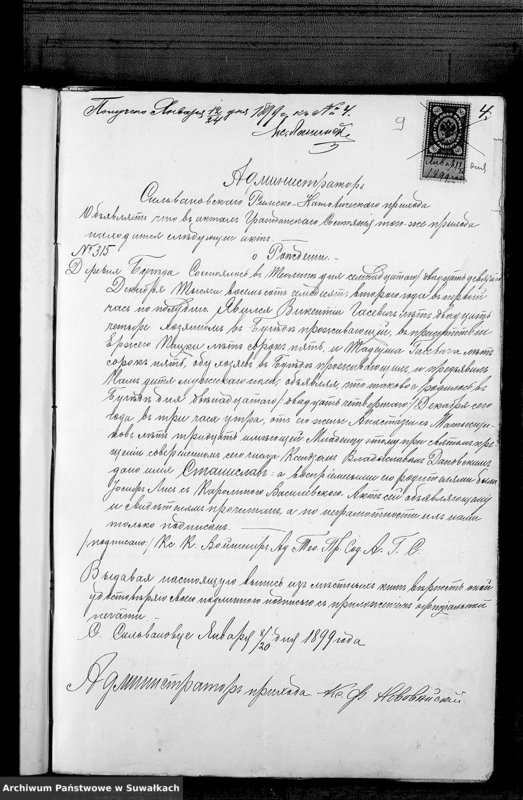 Получено Января 12/24 дня 1899 г. къ № 4.
9
4.
Января
1899
дня
Администраторъ
Сильвановскаго Римско-Католическаго прихода
Объявляетъ что въ актахъ Гражданскаго Состоянія того-же прихода
находится слѣдующій актъ
№ 315 о Рожденіи. –
Деревня Буда Состоялся въ дня семнадцатаго / двадцать девятаго
Декабря Тысяча восемьсотъ семьдесятъ втораго года въ первый
часъ по полудню. Явился Викентій лѣтъ двадцать
четыре хозяинъ въ проживающій, въ присутствіи
лѣтъ сорокъ пять, и лѣтъ
сорокъ пять, обу хозяевъ въ проживающихъ, и предъявилъ
Намъ дитя мужескаго пола, объявляя, что таковое родилось въ
дня двѣнадцатаго / двадцать четвертаго / Декабря сего
года въ три часа утра, отъ его жены Анастасіи съ
лѣтъ тридцать имѣющей Младенцу этому при святомъ кре-
щеніи совершенномъ сего числа Ксендзомъ Владиславомъ
дано имя Станиславъ: а воспріемными его родителями были
Іосифъ съ Каролиною Василевскою. Актъ сей объявляющему
и свидѣтелямъ прочитанъ, а по неграмотности ихъ нами
только подписанъ.
/подписано/ Кс. К. А. Г. С.
Выдавая настоящую выпись изъ мѣстныхъ книгъ вѣрность оной
удостовѣряю своею подписью съ приложеніемъ оффиціальной
печати.
С. Сильвановце Января 8/20 дня 1899 года
Администраторъ прихода Кс. Ф.
Archiwum Państwowe w Suwałkach